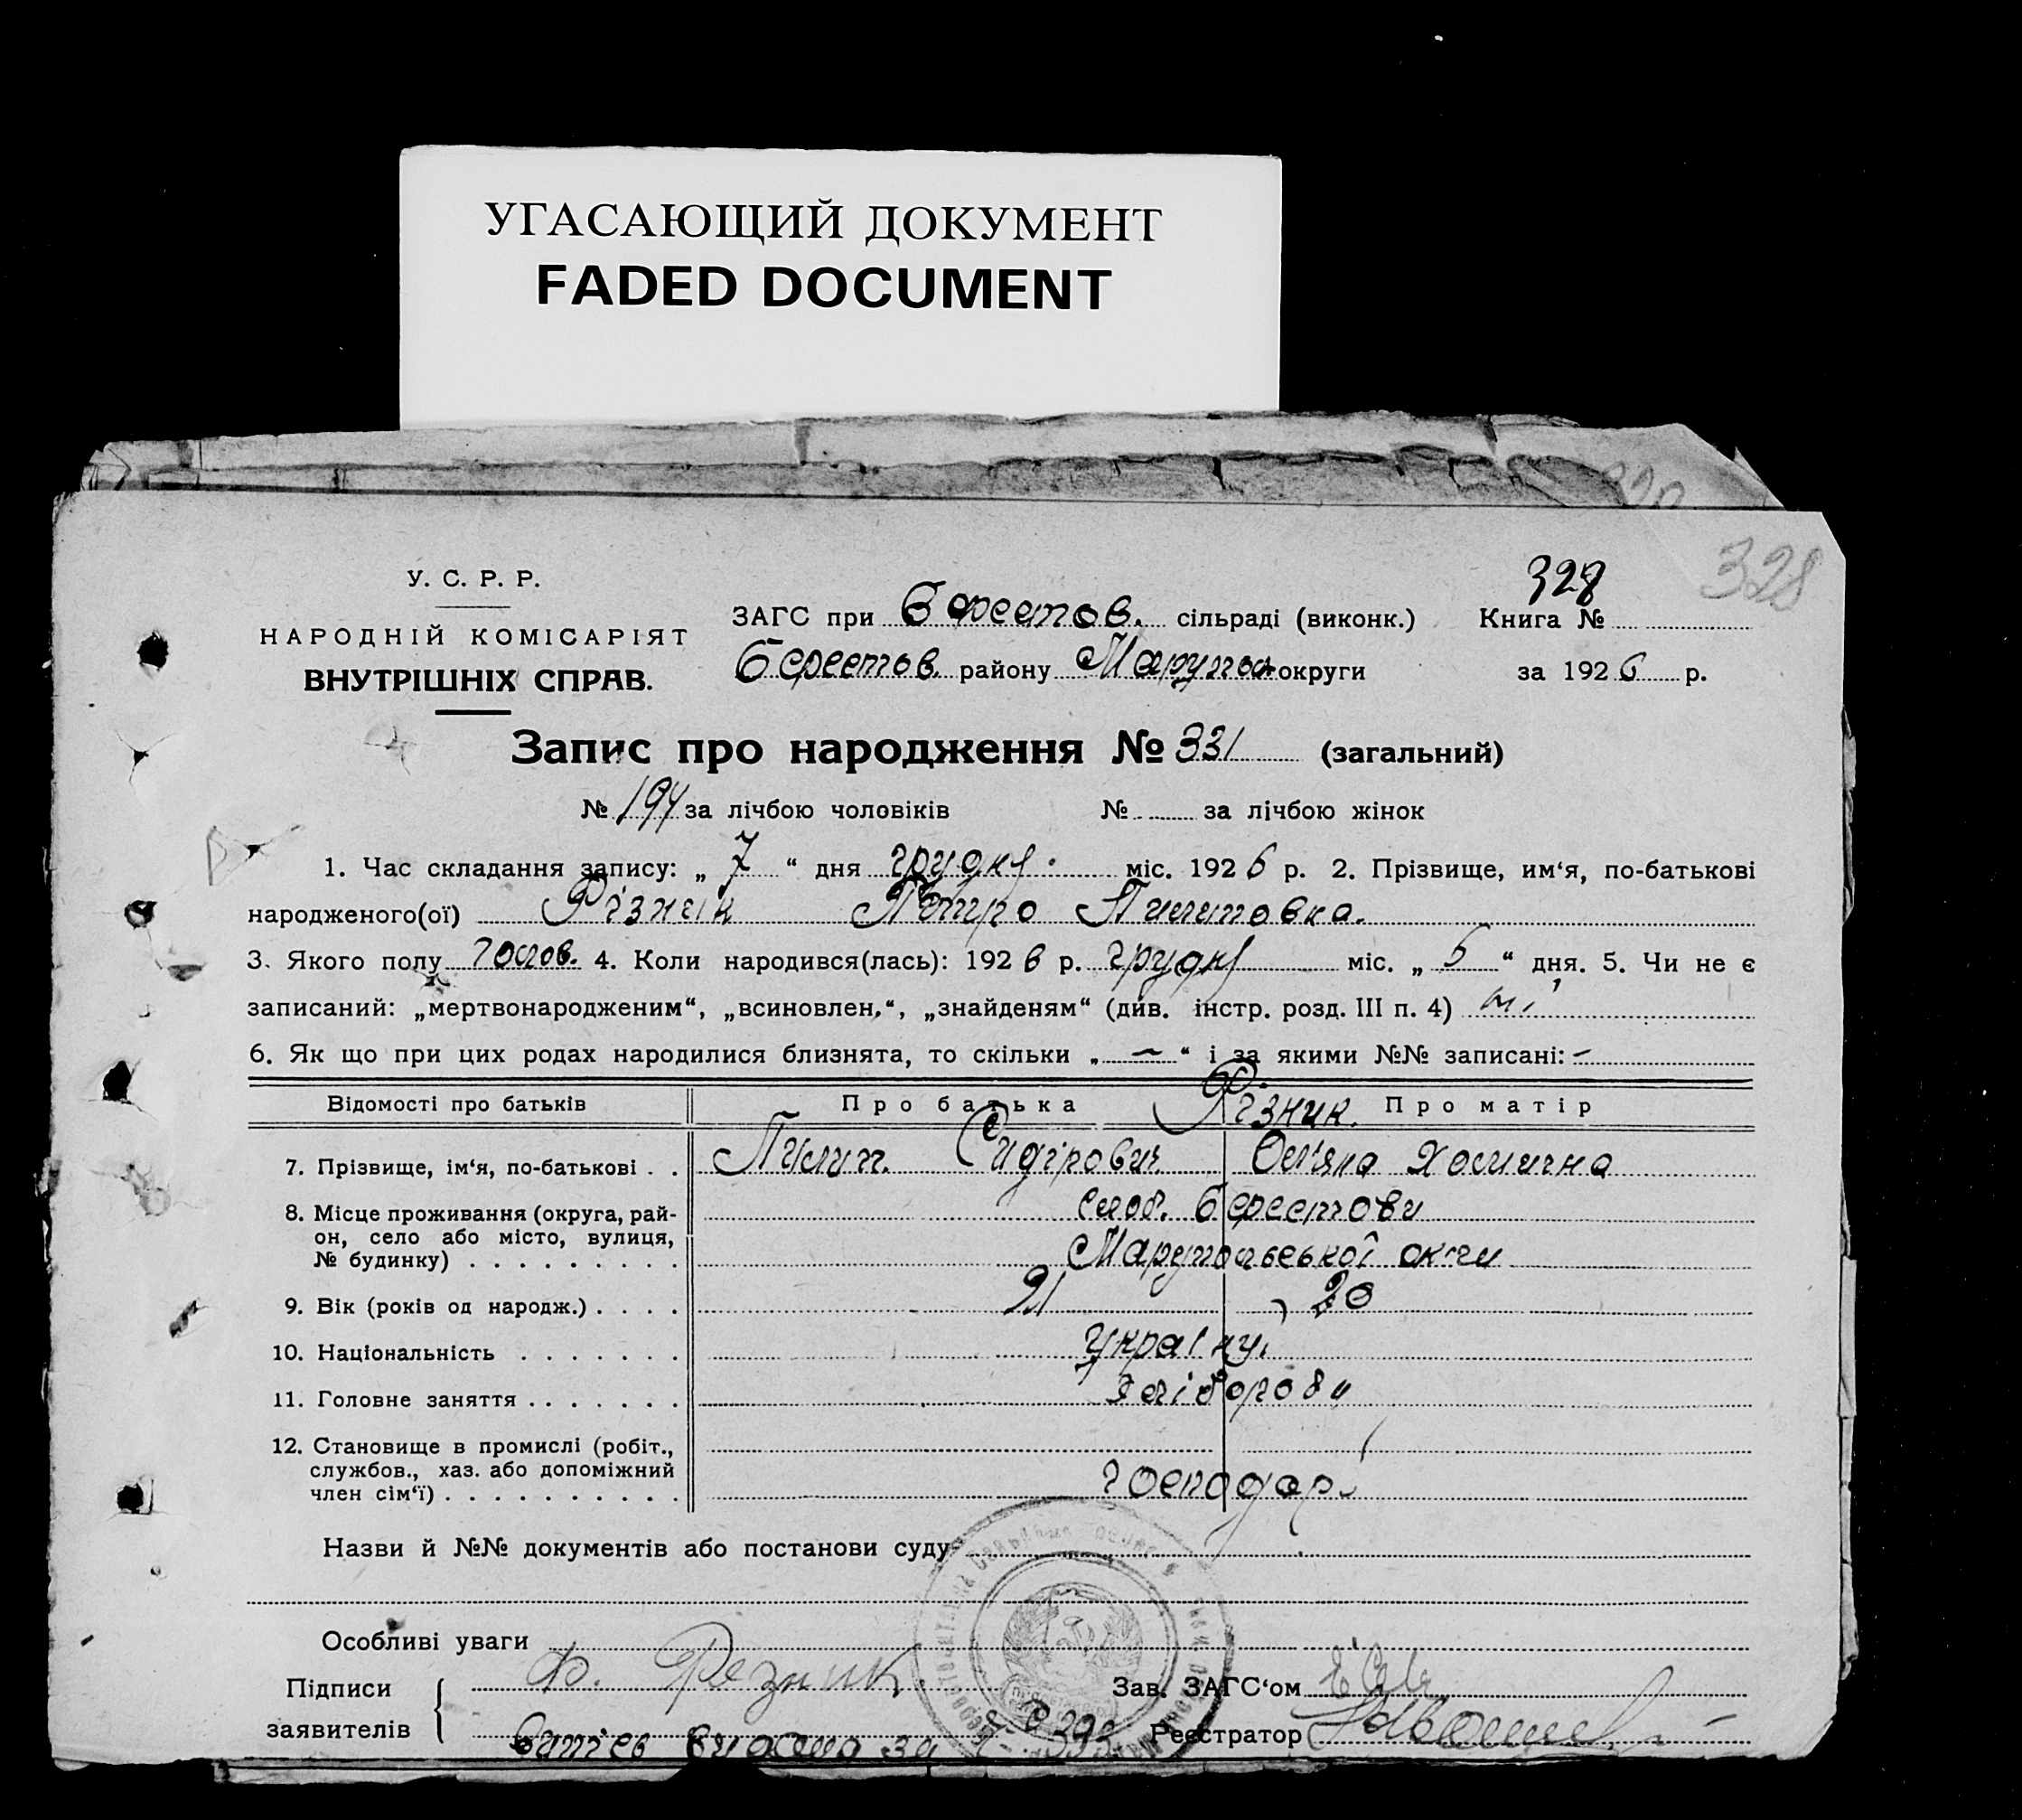 УГАСАЮЩИЙ ДОКУМЕНТ
FADED DOCUMENT
320
328
328
У. С. Р. Р.
НАРОДНІЙ КОМІСАРІЯТ
ВНУТРІШНІХ СПРАВ.
ЗАГС при Берестов. сільраді (виконк.) Книга №
Берестов. району Марупол округи за 1926 р.
Запис про народження № 331 (загальний)
№ 194 за лічбою чоловіків № за лічбою жінок
1. Час складання запису: „ 7 “ дня грудня міс. 1926 р. 2. Прізвище, им‘я, по-батькові
народженого(ої) Різнік Петро Пилиповка.
3. Якого полу чолов. 4. Коли народився(лась): 1926 р. грудня міс. „ 5 “ дня. 5. Чи не є
записаний: „мертвонародженим“, „всиновлен.“, „знайденям“ (див. інстр. розд. III п. 4) ні
6. Як що при цих родах народилися близнята, то скільки „ — “ і за якими №№ записані: –
Відомості про батьків Про батька Про матір
Різник.
7. Прізвище, ім‘я, по-батькові . . Пилип. Сидірович Хомична
8. Місце проживання (округа, рай-
он, село або місто, вулиця,
№ будинку) . . . . . . . . .
слоб. Берестови
Марупольської ок-ги
9. Вік (років од народж.) . . . . 21 20
10. Національність . . . . . . . україну.
11. Головне заняття . . . . . . . хліборови
12. Становище в промислі (робіт.,
службов., хаз. або допоміжний
член сім‘ї) . . . . . . . . . .
господар.
Назви й №№ документів або постанови суду
Особливі уваги
Підписи
заявителів
Ф. Резник.
Зав. ЗАГС‘ом
Реєстратор
Витяг видано за № 393